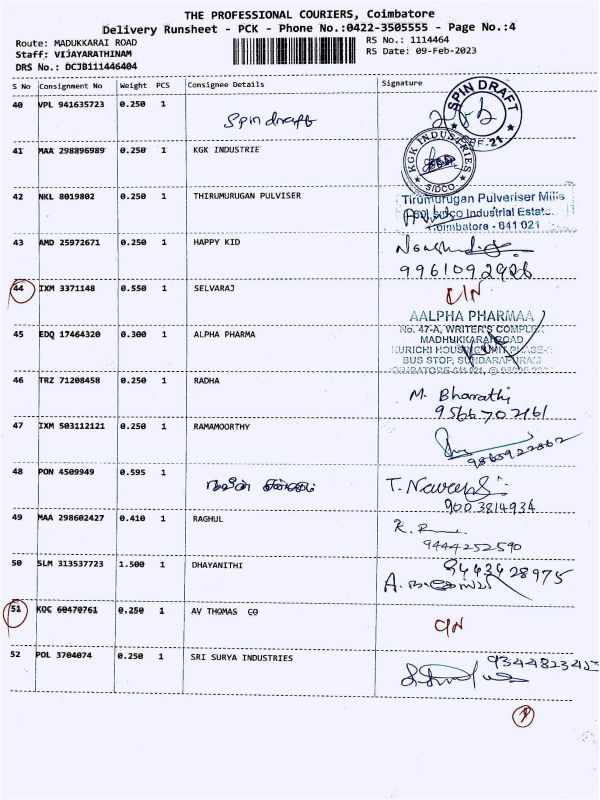 THE PROFESSIONAL COURIERS, Coimbatore
Delivery Runsheet - PCK - Phone No.:0422-3505555 - Page No.:4
Route: MADUKKARAI ROAD RS No.: 1114464
Staff: VIJAYARATHINAM RS Date: 09-Feb-2023
DRS No.: DCJB111446404
S No Consignment No Weight PCS Consignee Details Signature
40 VPL 941635723 0.250 1 Spindraft SPIN DRAFT
41 MAA 298896989 0.250 1 KGK INDUSTRIE KGK INDUSTRIES SIDCO
42 NKL 8019802 0.250 1 THIRUMURUGAN PULVISER Tirumurugan Pulveriser Mills
Sidco Industrial Estate
Coimbatore - 641 021
43 AMD 25972671 0.250 1 HAPPY KID
9961092926
44 IXM 3371148 0.550 1 SELVARAJ C/N
45 EDQ 17464320 0.300 1 ALPHA PHARMA AALPHA PHARMAA
No. 47-A, WRITER'S COMPLEX
MADHUKKARAI ROAD
KURICHI HOUSING UNIT PHASE-
BUS STOP, SUNDARAPURAM
46 TRZ 71208458 0.250 1 RADHA M. Bharathi
9566702161
47 IXM 503112121 0.250 1 RAMAMOORTHY
9865922862
48 PON 4509949 0.595 1 T. Naveen
9003814934
49 MAA 298602427 0.410 1 RAGHUL K. R
9444252590
50 SLM 313537723 1.500 1 DHAYANITHI 9443428975
51 KOC 60470761 0.250 1 AV THOMAS CO C/N
52 POL 3704074 0.250 1 SRI SURYA INDUSTRIES